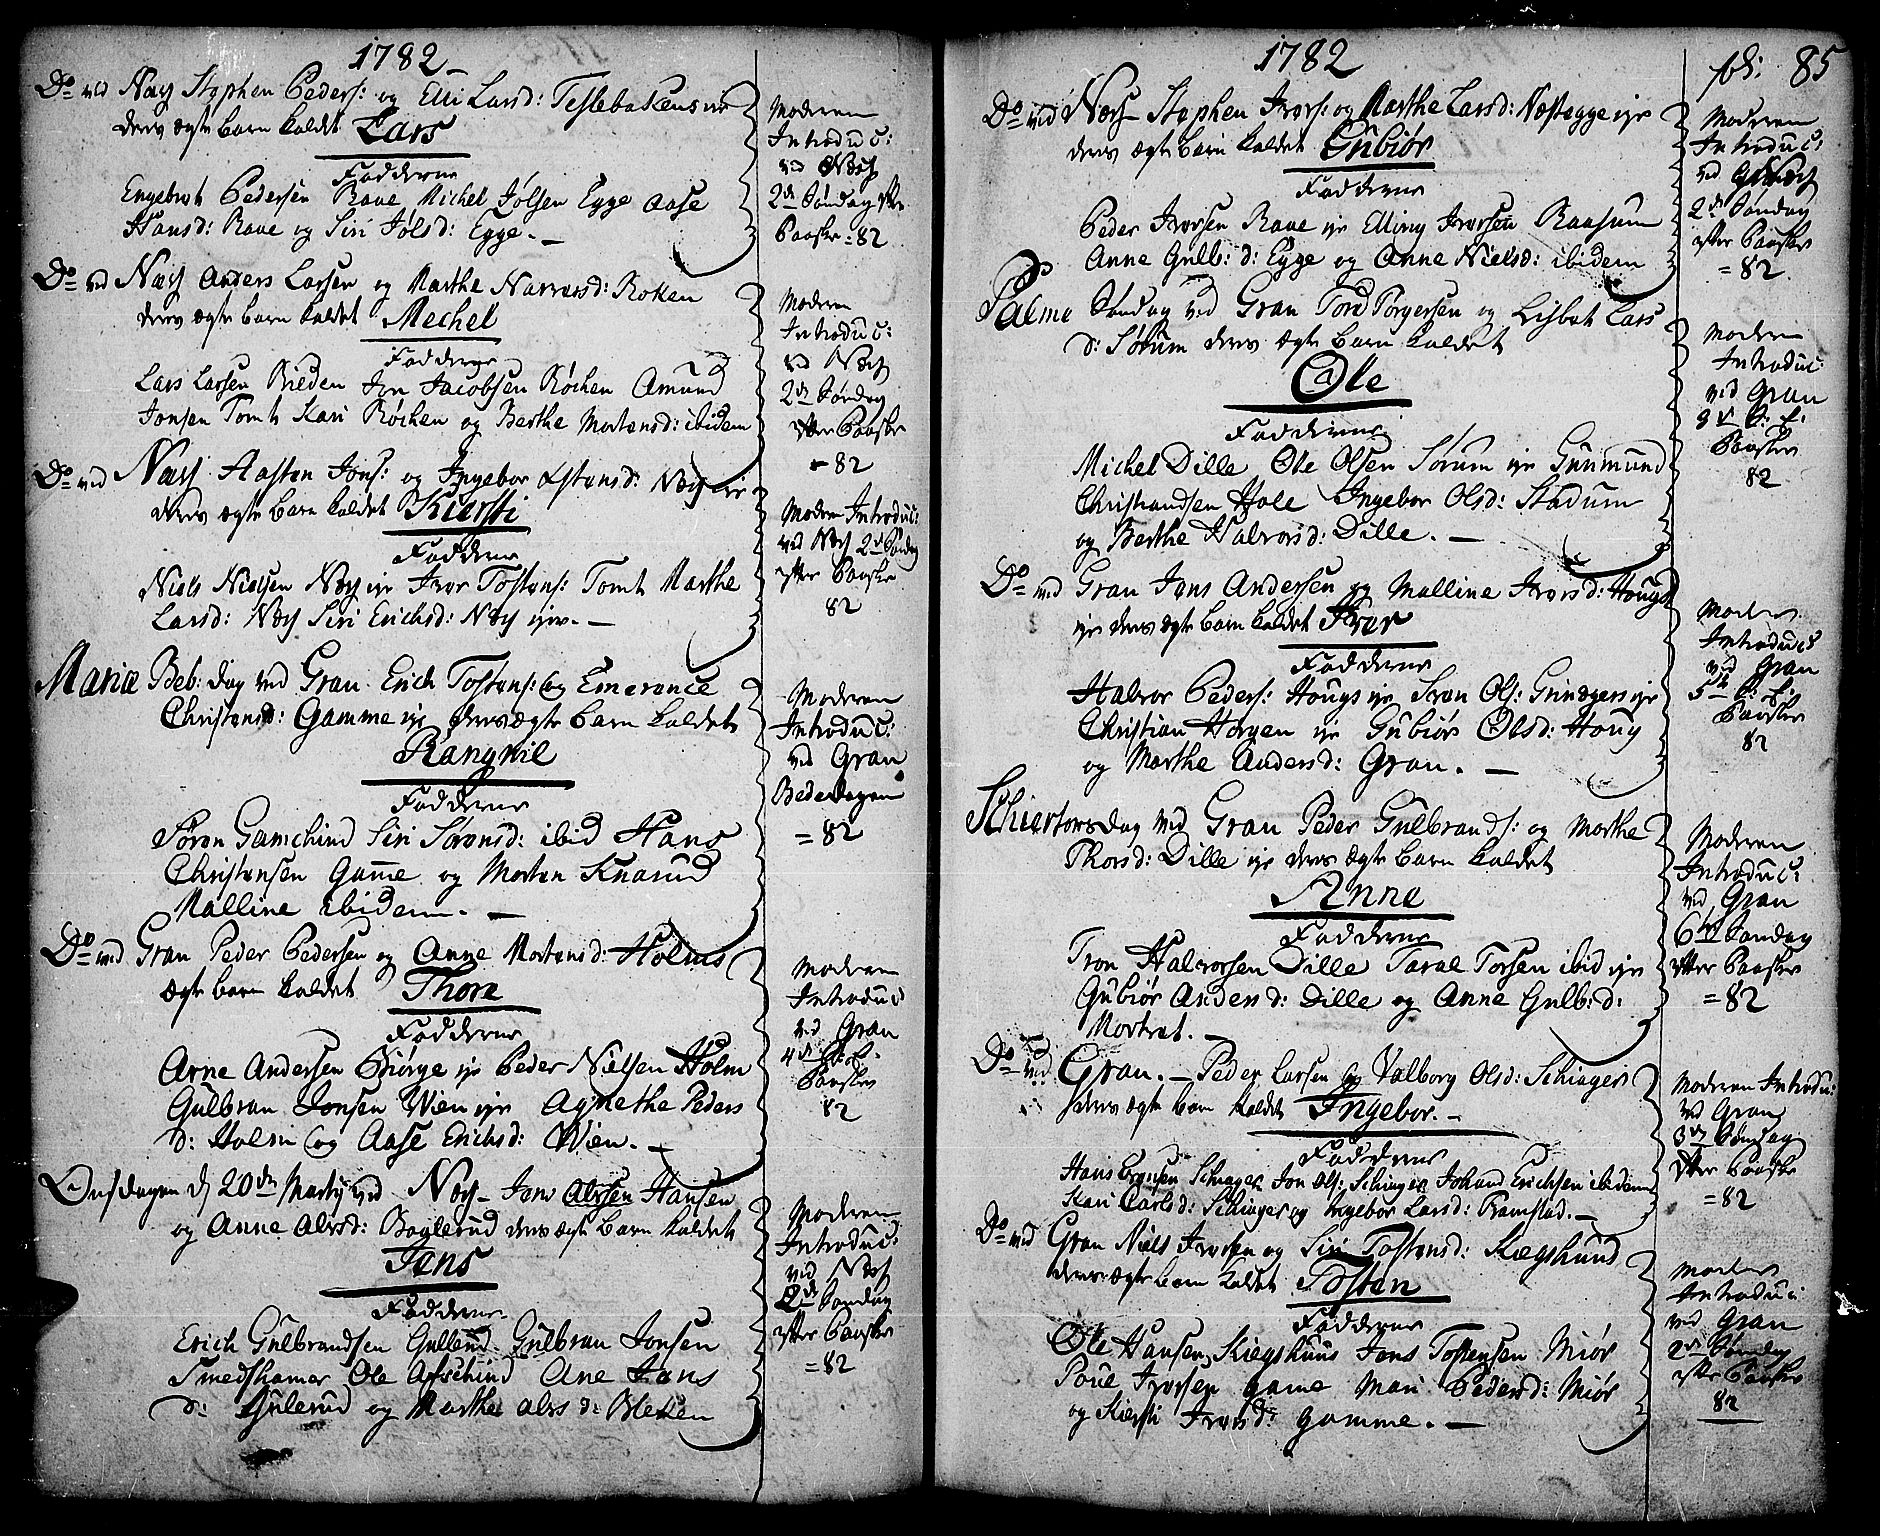 1782
Do ved Næs Stephen Peders: og Elli Larsd:
deres ægte barn kaldet Lars
Fadderne
Engebret Pedersen Raae Michel Jølsen Egge Aase
Hansd: Raae og Siri Jølsd: Egge.
Moderen
Introduc:
ved Næs
2den Søndag efter
Paaske = 82
Do ved Næs Anders Larsen og Marthe Narvesd: Rokken
deres ægte barn kaldet Mechel
Fadderne
Lars Larsen Jon Jacobsen Røchen Amund
Jonsen Tomt Kari Røchen og Berthe Mortensd: ibidem
Moderen
Introduc:
ved Næs
2den Søndag
efter Paaske
= 82
Do ved Næs Aasten Jons: og Ingebor Næs eje
deres ægte barn kaldet Kiersti
Fadderne
Niels Nielsen Næs eje Iver Tostens: Tomt Marthe
Larsd: Næs Siri Erichsd: Næs eje.
Moderen Introduc:
ved Næs 2den Søndag
efter Paaske
82
Mariæ Beb: dag ved Gran Erich Tostens: og Emerance
Christensd: Gamme eje deres ægte barn kaldet
Rangnil
Fadderne
Søren Gamchind Siri Sørensd: ibid Hans
Christensen Gamme og Morten Knarud
Malline ibidem.
Moderen
Introduc:
ved Gran
Bededagen
= 82
Do ved Gran Peder Pedersen og Anne Mortensd: Holms
ægte barn kaldet Thore
Fadderne
Arne Andersen eje Peder Nielsen Holm
Gulbran Jonsen Wien eje Agnethe Peders
d: Holm og Aase Erichsd: Wien.
Moderen
Introduc:
ved Gran
4de S: E:
Paaske
82
Onsdagen d 20de Marty ved Næs Jens Hansen
og Anne Alvsd: Baglerud deres ægte barn kaldet
Jens
Fadderne
Erich Gulbrandsen Gullerud Gulbran Jonsen
Smedshamer Ole Ane Jens
d: Gulerud og Marthe Alvs d: Bleken
Moderen
Introduc:
ved Næs
2den Søndag
efter Paaske
= 82
1782
fol: 85
Do ved Næs Stephen Ivers: og Marthe Larsd: eje
deres ægte barn kaldet Gubiør
Fadderne
Peder Iversen Raae eje Elling Iversen Raasum
Anne Gulb: d: Egge og Anne Nielsd: ibidem
Moderen
Introduc:
ved Næs
2den Søndag
efter Paaske
= 82
Palme Søndag ved Gran Tord Torgersen og Lisbet Lars
d: Sørum deres ægte barn kaldet
Ole
Fadderne
Michel Dille Ole Olsen Sørum eje Gunmund
Christiansen Hole Ingebor Olsd: Stadum
og Berthe Halvorsd: Dille.
Moderen
Introduc:
ved Gran
3de S: E:
Paaske
82
Do ved Gran Jens Andersen og Malline Iversd: Hougs
eje deres ægte barn kaldet Iver
Fadderne
Halvor Peders: Hougs eje Iver Ols: Grinagers eje
Christian Horgen eje Gubiør Olsd: Houg
og Marthe Andersd: Gran.
Moder
Introduc:
ved Gran
5te S: E:
Paaske
82
Schiertorsdag ved Gran Peder Gulbrands: og Marthe
Thorsd: Dille eje deres ægte barn kaldet
Anne
Fadderne
Tron Halvorsen Dille Taral Torsen ibid eje
Gubiør Anders d: Dille og Anne Gulb: d:
Mortret.
Moderen
Introduc:
ved Gran
6te Søndag
efter Paaske
= 82
Do ved Gran. Peder Larsen og Valborg Olsd: Schiager
deres ægte barn kaldet Ingebor.
Fadderne
Hans Schiager Jon Ols: Schiager Johand Erichsen ibidem
Kari Carlsd: Schiager og Ingebor Larsd: Framstad.
Moderen Introduc:
ved Gran
3de Søndag
efter Paaske
= 82
Do ved Gran Niels Iversen og Siri Tostensd: Kiegshund
deres ægte barn kaldet Tosten
Fadderne
Ole Hansen Kiegshuus Jens Tostensen Miør
Poue Iversen Game Mari Pedersd: Miør
og Kiersti Iversd: Gamme.
Moder
Introduc:
ved Gran
2den Søndag
efter Paaske
82